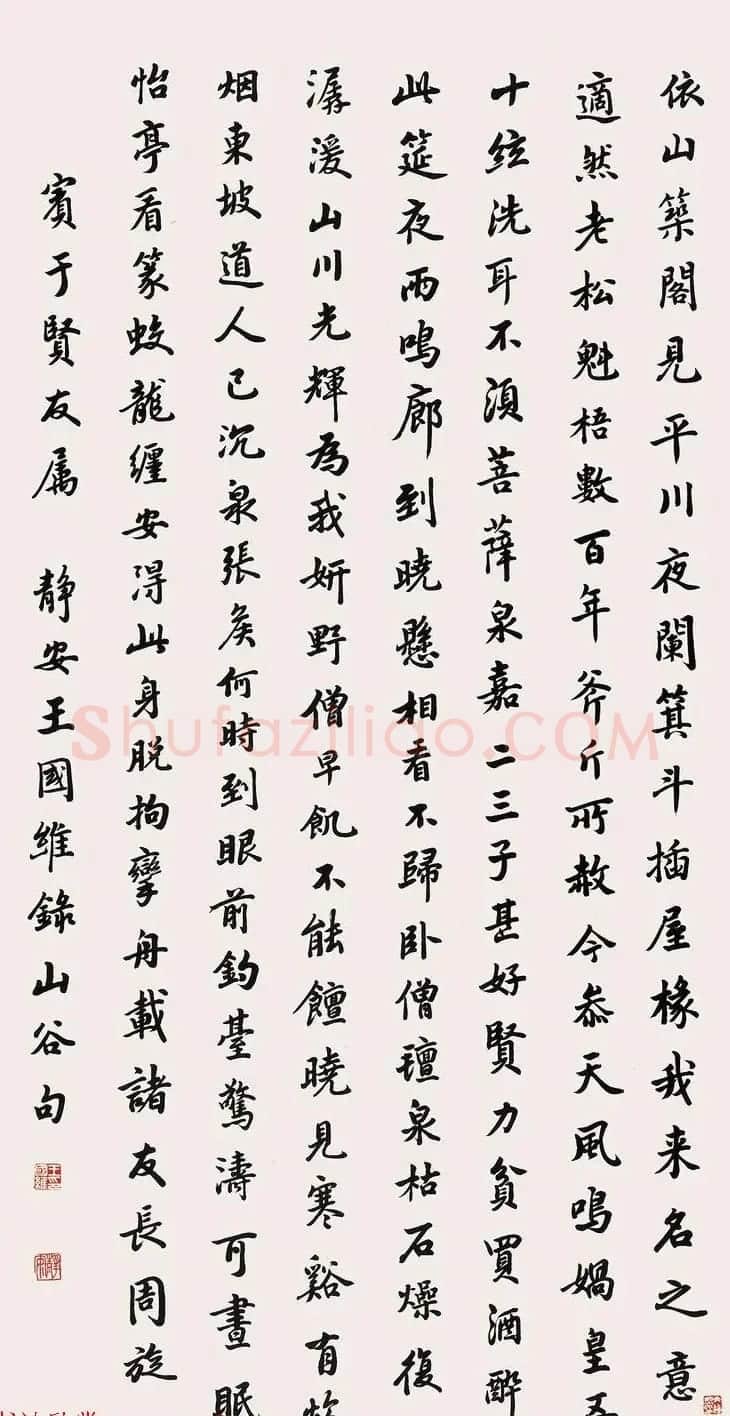 依山築閣見平川夜闌箕斗插屋椽我来名之意
適然老松魁梧數百年斧斤所赦今叅天風鳴媧皇五
十絃洗耳不須菩薩泉嘉二三子甚好賢力貧買酒醉
此筵夜雨鳴廊到曉懸相看不歸卧僧氊泉枯石燥復
潺湲山川光輝為我妍野僧早飢不能饘曉見寒谿有炊
烟東坡道人已沉泉張侯何時到眼前釣臺驚濤可晝眠
怡亭看篆蛟龍纏安得此身脫拘攣舟載諸友長周旋
賓于賢友属 静安王國維錄山谷句
Shufaziliao.COM